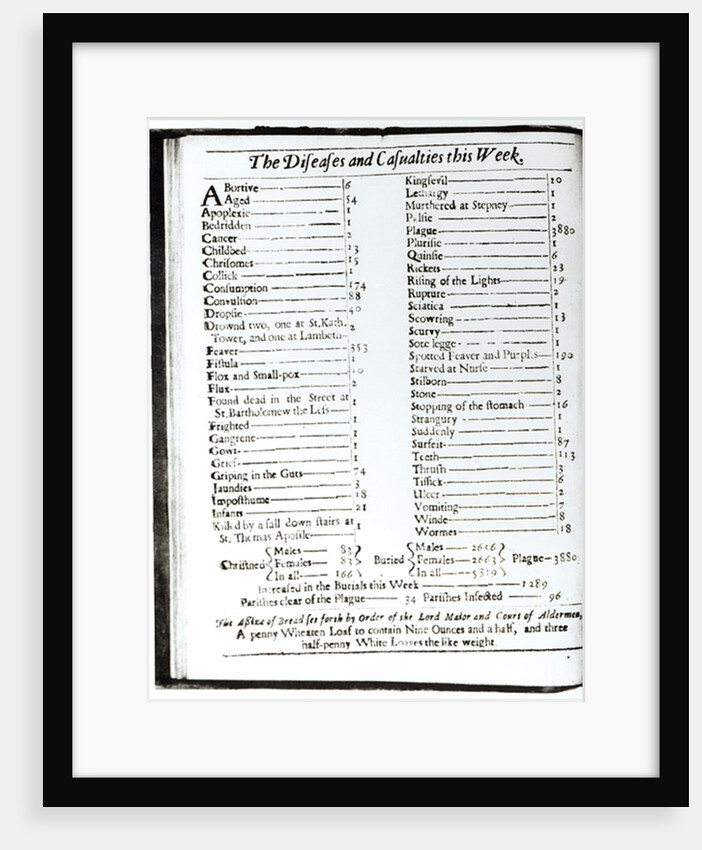 The Diſeaſes and Caſualties this Week.
ABortive 6
Aged 54
Apoplexie 1
Bedridden 1
Cancer 2
Childbed 23
Chriſomes 15
Collick 1
Conſumption 174
Convulſion 88
Dropſie 40
Drownd two, one at St. Kath. 2
Tower, and one at Lambeth
Feaver 353
Fiſtula 1
Flox and Small-pox 10
Flux 2
Found dead in the Street at 1
St. Bartholomew the Leſs
Frighted 1
Gangrene 1
Gowt 1
Grief 1
Griping in the Guts 74
Jaundies 3
Impoſthume 18
Infants 21
Kill'd by a fall down ſtairs at 1
St. Thomas Apoſtle
Kingſevil 10
Lethargy 1
Murthered at Stepney 1
Palſie 2
Plague 3880
Pluriſie 1
Quinſie 6
Rickets 23
Riſing of the Lights 19
Rupture 2
Sciatica 1
Scowring 13
Scurvy 1
Sore legge 1
Spotted Feaver and Purples 190
Starved at Nurſe 1
Stilborn 8
Stone 2
Stopping of the ſtomach 16
Strangury 1
Suddenly 1
Surfeit 87
Teeth 113
Thruſh 3
Tiſſick 6
Ulcer 2
Vomiting 7
Winde 8
Wormes 18
Chriſtned Males 83 Females 83 In all 166
Buried Males 2656 Females 2663 In all 5319 Plague 3880
Increaſed in the Burials this Week 1289
Pariſhes clear of the Plague 34 Pariſhes Infected 96
The Aſſize of Bread ſet forth by Order of the Lord Maior and Court of Aldermen,
A penny Wheaten Loaf to contain Nine Ounces and a half, and three
half-penny White Loaves the like weight.